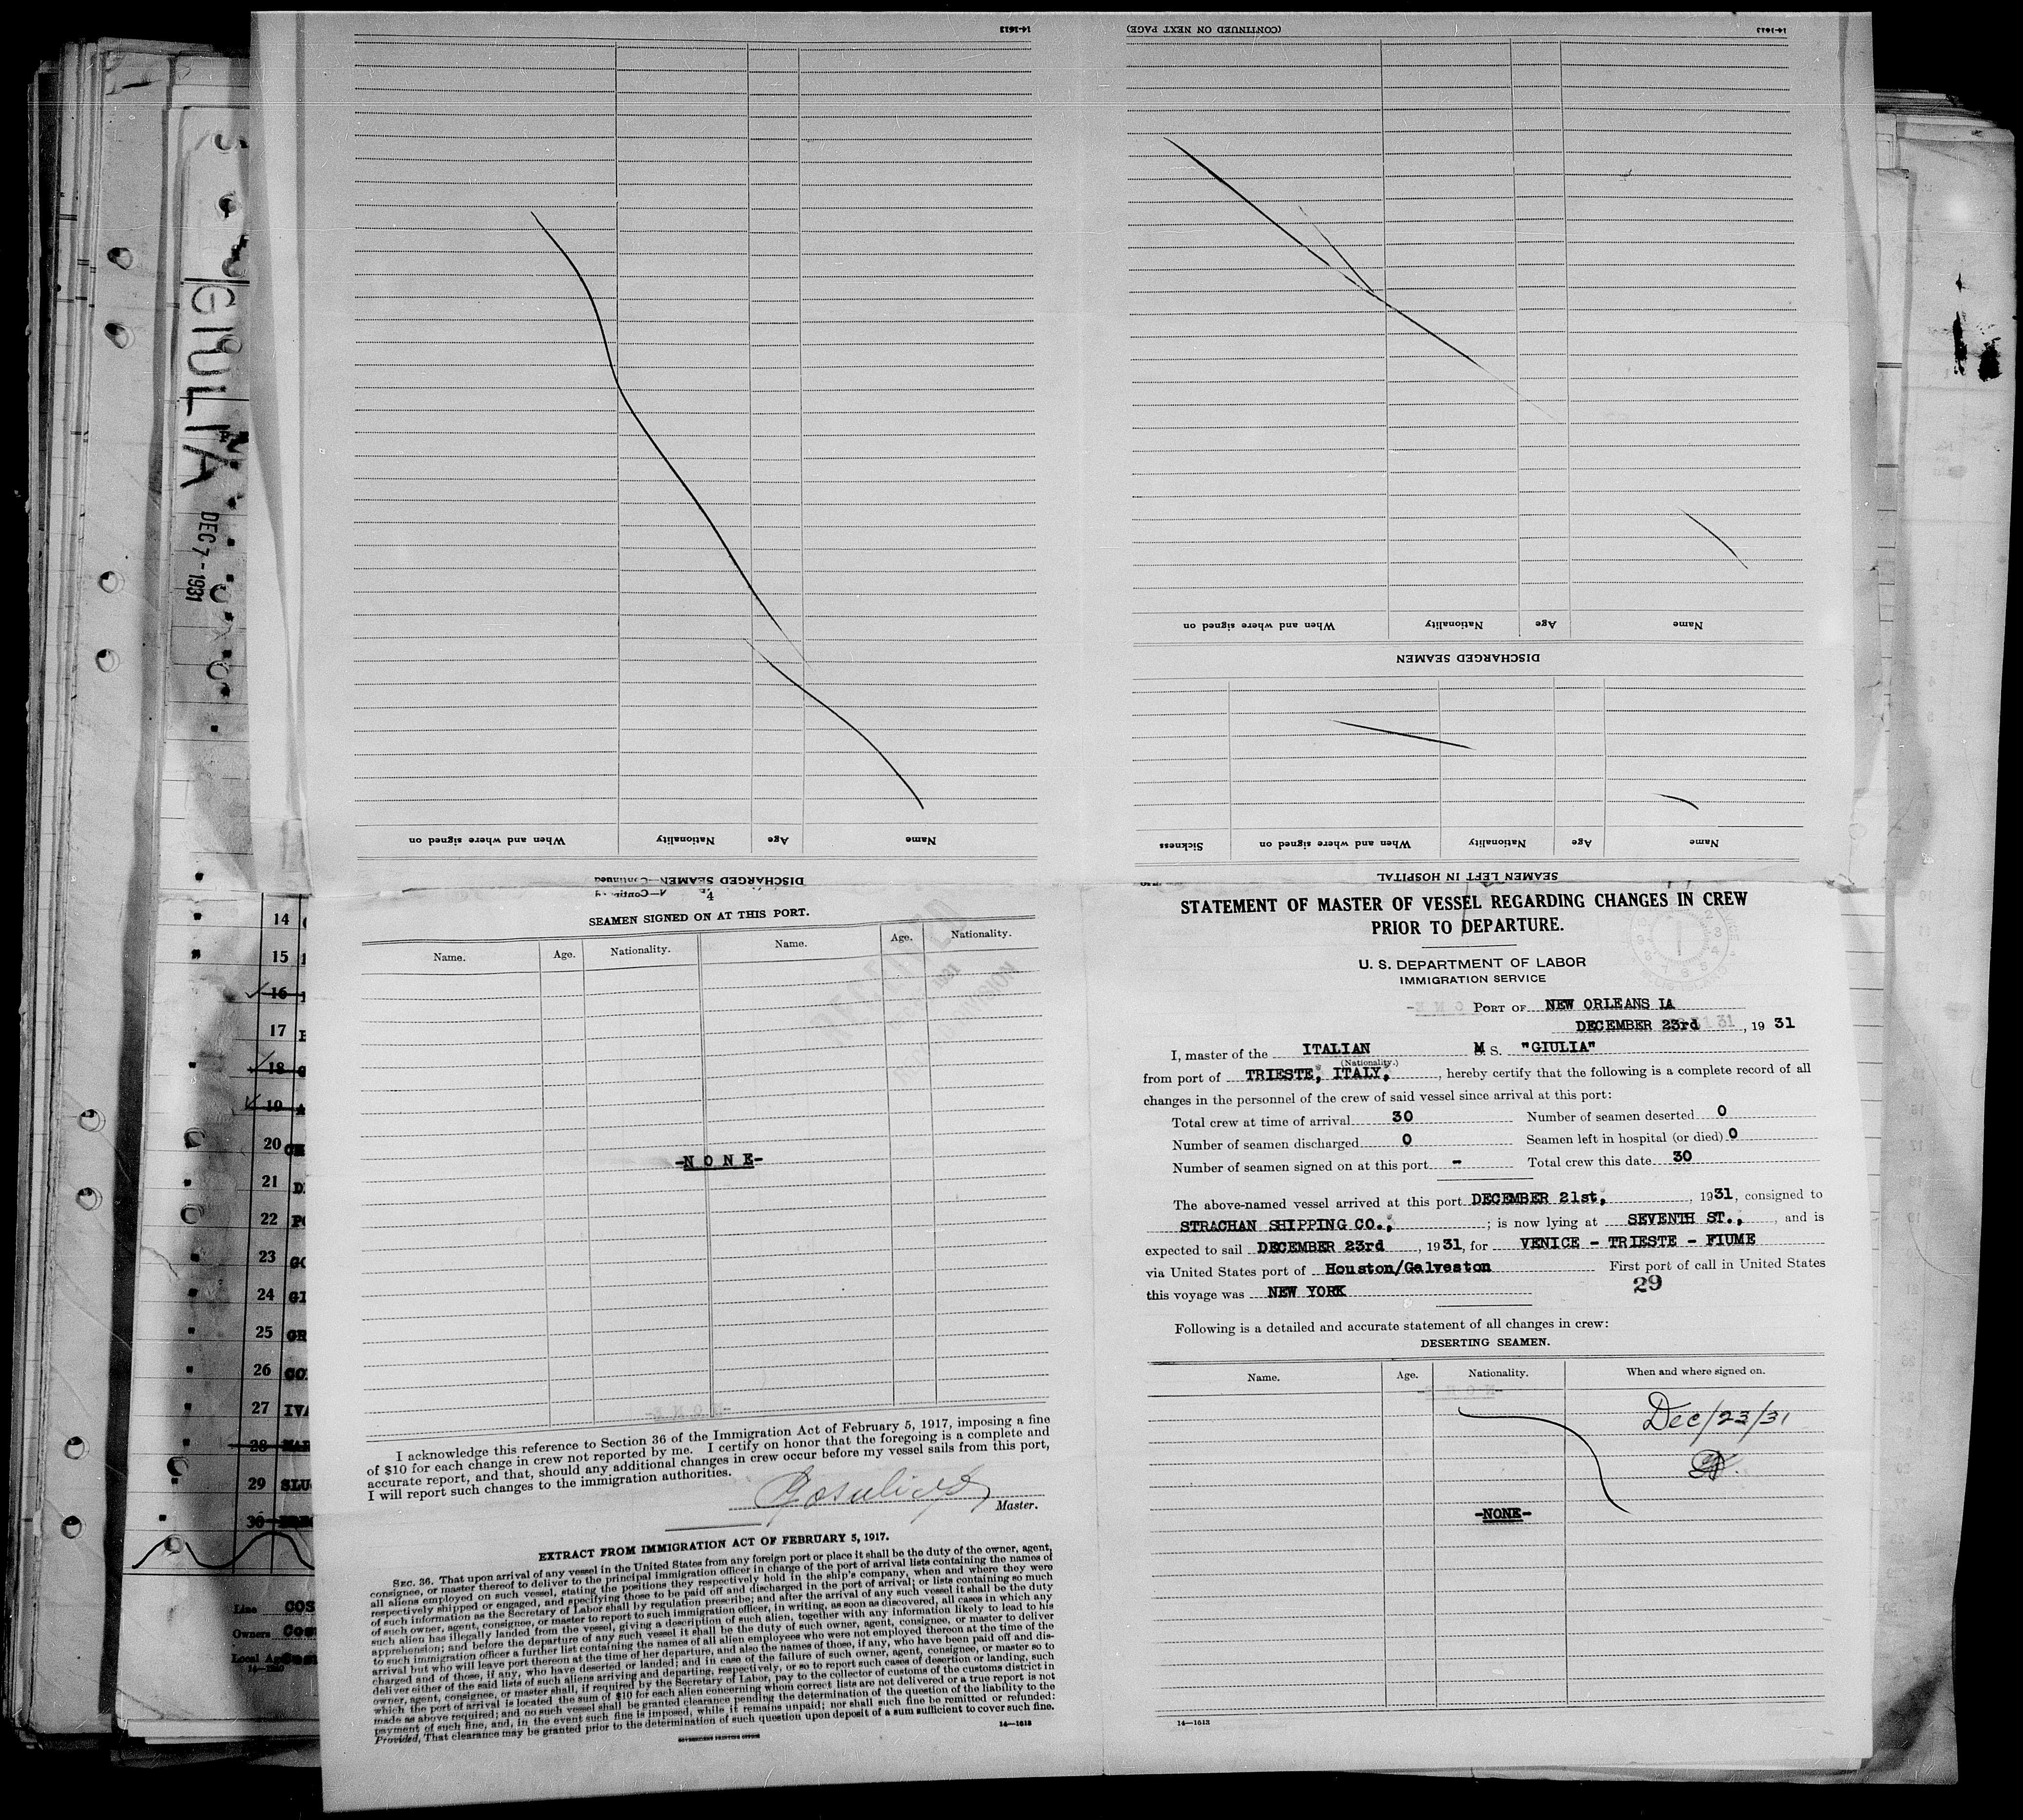 14-1613
(CONTINUED ON NEXT PAGE)
14-1613
When and where signed on
Nationality
Age
Name
DISCHARGED SEAMEN
Sickness
When and where signed on
Nationality
Age
Name
SEAMEN LEFT IN HOSPITAL
When and where signed on
Nationality
Age
Name
DISCHARGED SEAMEN—Continued
GIULIA
DEC 7-1931
14
15
16
17
18
19
20
21
22
23
24
25
26
27 IVA
28 MAR
29 SLU
30
Line COS
Owners Cosu
Local Ag
SEAMEN SIGNED ON AT THIS PORT.
Name. Age. Nationality. Name. Age. Nationality.
-N O N E-
I acknowledge this reference to Section 36 of the Immigration Act of February 5, 1917, imposing a fine
of $10 for each change in crew not reported by me. I certify on honor that the foregoing is a complete and
accurate report, and that, should any additional changes in crew occur before my vessel sails from this port,
I will report such changes to the immigration authorities.
Master.
EXTRACT FROM IMMIGRATION ACT OF FEBRUARY 5, 1917.
SEC. 36. That upon arrival of any vessel in the United States from any foreign port or place it shall be the duty of the owner, agent,
consignee, or master thereof to deliver to the principal immigration officer in charge of the port of arrival lists containing the names of
all aliens employed on such vessel, stating the positions they respectively hold in the ship's company, when and where they were
respectively shipped or engaged, and specifying those to be paid off and discharged in the port of arrival; or lists containing so much
of such information as the Secretary of Labor shall by regulation prescribe; and after the arrival of any such vessel it shall be the duty
of such owner, agent, consignee, or master to report to such immigration officer, in writing, as soon as discovered, all cases in which any
such alien has illegally landed from the vessel, giving a description of such alien, together with any information likely to lead to his
apprehension; and before the departure of any such vessel it shall be the duty of such owner, agent, consignee, or master to deliver
to such immigration officer a further list containing the names of all alien employees who were not employed thereon at the time of the
arrival but who will leave port thereon at the time of her departure, and also the names of those, if any, who have been paid off and dis-
charged and of those, if any, who have deserted or landed; and in case of the failure of such owner, agent, consignee, or master so to
deliver either of the said lists of such aliens arriving and departing, respectively, or so to report such cases of desertion or landing, such
owner, agent, consignee, or master shall, if required by the Secretary of Labor, pay to the collector of customs of the customs district in
which the port of arrival is located the sum of $10 for each alien concerning whom correct lists are not delivered or a true report is not
made as above required; and no such vessel shall be granted clearance pending the determination of the question of the liability to the
payment of such fine, and, in the event such fine is imposed, while it remains unpaid; nor shall such fine be remitted or refunded:
Provided, That clearance may be granted prior to the determination of such question upon deposit of a sum sufficient to cover such fine.
14—1613
GOVERNMENT PRINTING OFFICE
STATEMENT OF MASTER OF VESSEL REGARDING CHANGES IN CREW
PRIOR TO DEPARTURE.
U. S. DEPARTMENT OF LABOR
IMMIGRATION SERVICE
PORT OF NEW ORLEANS LA
DECEMBER 23rd, 1931
I, master of the ITALIAN M S. "GIULIA"
(Nationality.)
from port of TRIESTE, ITALY, , hereby certify that the following is a complete record of all
changes in the personnel of the crew of said vessel since arrival at this port:
Total crew at time of arrival 30 Number of seamen deserted 0
Number of seamen discharged 0 Seamen left in hospital (or died) 0
Number of seamen signed on at this port - Total crew this date 30
The above-named vessel arrived at this port DECEMBER 21st, , 1931, consigned to
STRACHAN SHIPPING CO., ; is now lying at SEVENTH ST., , and is
expected to sail DECEMBER 23rd , 1931, for VENICE - TRIESTE - FIUME
via United States port of Houston/Galveston First port of call in United States
this voyage was NEW YORK 29
Following is a detailed and accurate statement of all changes in crew:
DESERTING SEAMEN.
Name. Age. Nationality. When and where signed on.
Dec/23/31
-NONE-
14—1613